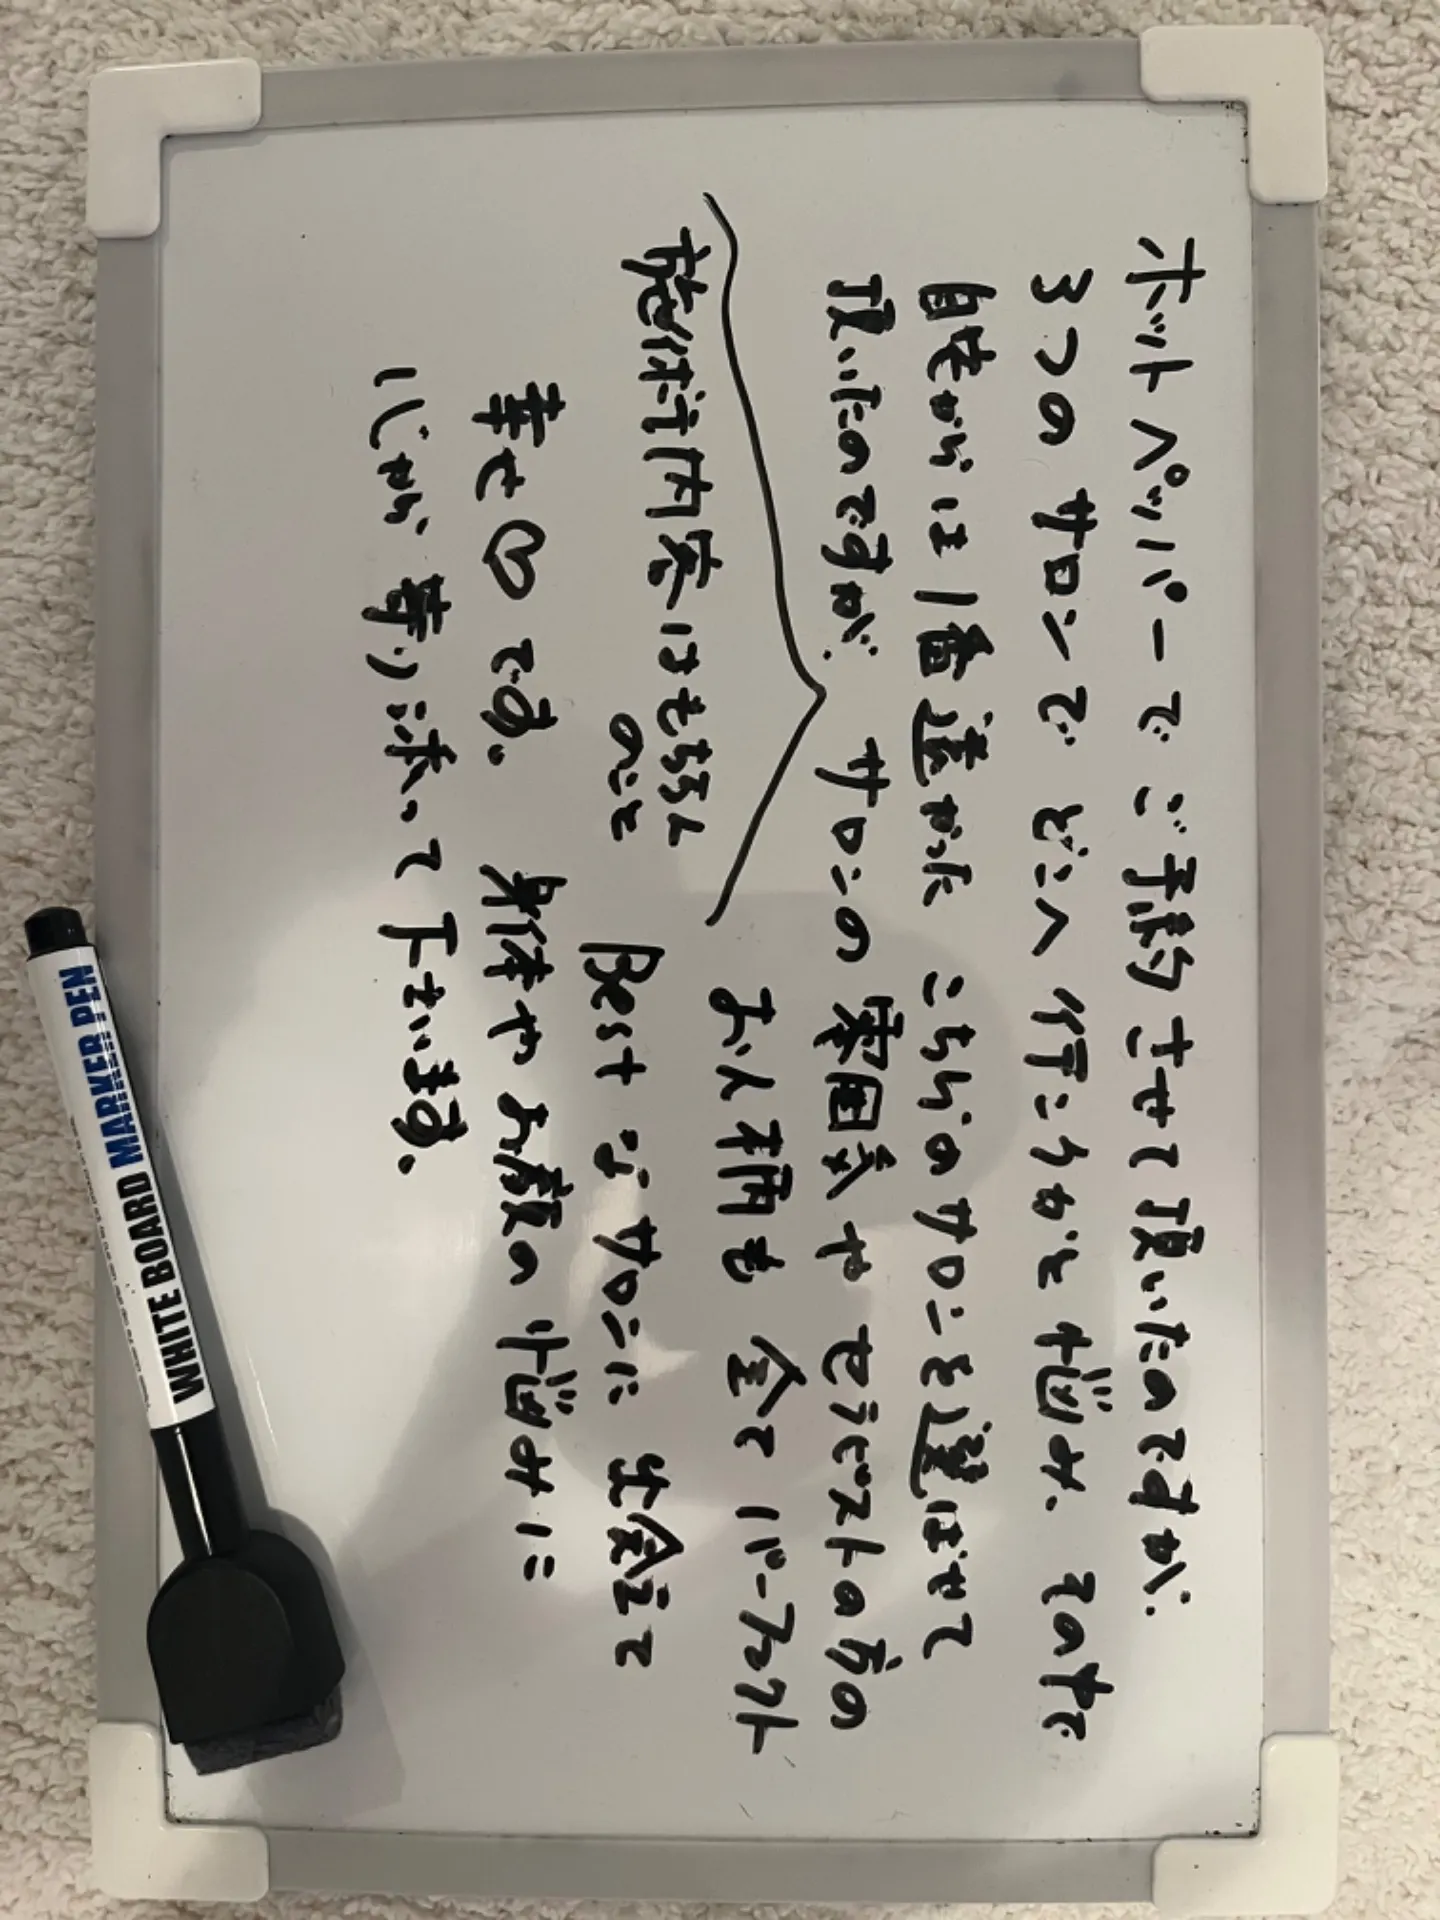 ホットペッパーでご予約させて頂いたのですが、
3つのサロンでどこへ行こうかと悩み、その中で
自宅からは1番遠かったこちらのサロンを選ばせて
頂いたのですが、サロンの雰囲気やセラピストの方の
お人柄も全てパーフェクト
施術内容はもちろん
のこと
Bestなサロンに出会えて
幸せ♡です。身体やお顔の悩みに
心から寄り添って下さいます。
WHITE BOARD MARKER PEN